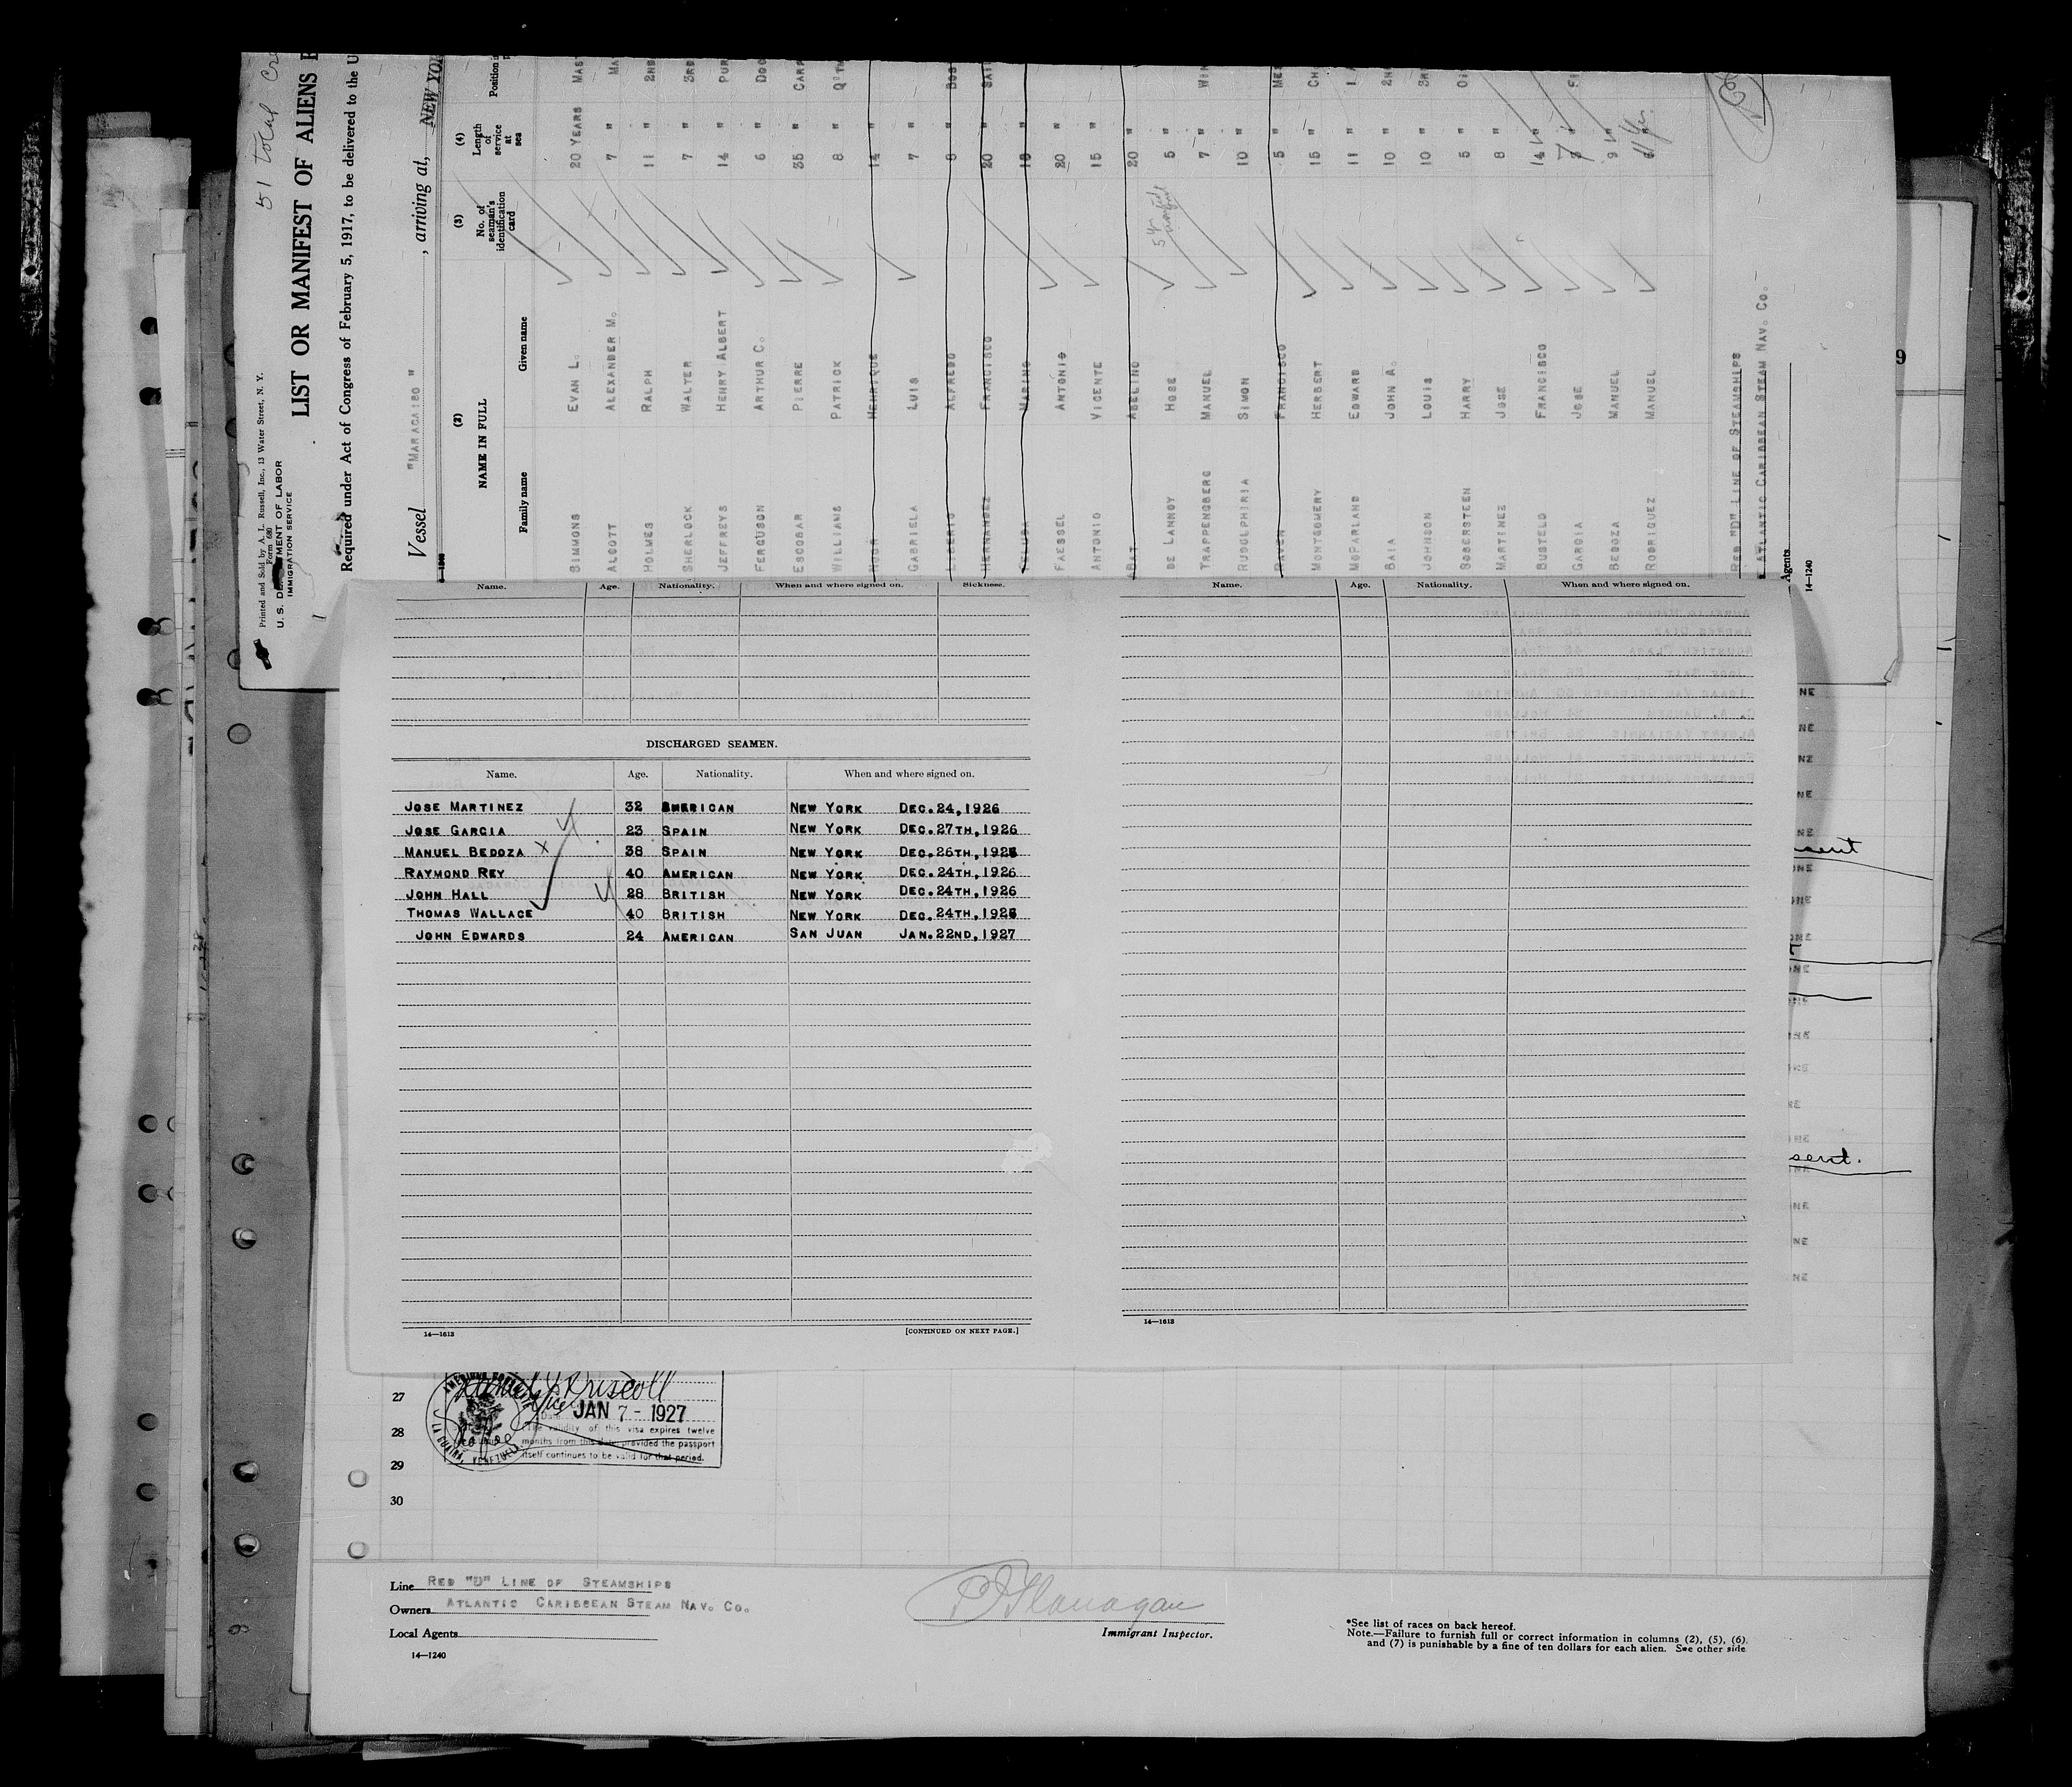 51 total
Printed and Sold by A. L. Russell, Inc., 13 Water Street, N. Y.
Form 680
U. S. DEPARTMENT OF LABOR
IMMIGRATION SERVICE
LIST OR MANIFEST OF ALIENS
Required under Act of Congress of February 5, 1917, to be delivered to the U
Vessel "MARACAIBO", arriving at, NEW YOR
(2) NAME IN FULL
Family name Given name
(3) No. of seaman's identification card
(4) Length of service at sea
Position
SIMMONS EVAN L. 20 YEARS MAS
ALCOTT ALEXANDER M. 7 " MA
HOLMES RALPH 11 " 2ND
SHERLOCK WALTER 7 " 3RD
JEFFREYS HENRY ALBERT 14 " PUR
FERGUSON ARTHUR C. 6 " DOC
ESCOBAR PIERRE 35 " CARP
WILLIAMS PATRICK 8 " QRTM
HENRIQUE 14 "
GABRIELA LUIS 7 "
LIBERIO ALFREDO 8 " BOS
HERNANDEZ FRANCISCO 20 " SAIL
18 "
FAESSEL ANTONIO 20 "
ANTONIO VICENTE 15 "
ABAT ABELINO 20 "
DE LANNOY HOSE 5 "
TRAPPENBERG MANUEL 7 " WIN
RUDOLPHIRIA SIMON 10 "
FRANCISCO 5 " MES
MONTGOMERY HERBERT 15 " CH
MCPARLAND EDWARD 11 "
BAIA JOHN A. 10 " 2ND
JOHNSON LOUIS 10 " 3RD
SOBERSTEN HARRY 5 " OI
MARTINEZ JOSE 8 "
BUSTELO FRANCISCO 14 "
GARCIA JOSE
BEDOZA MANUEL 9 "
RODRIGUEZ MANUEL
RED "D" LINE OF STEAMSHIPS
ATLANTIC CARIBBEAN STEAM NAV. CO.
Agents
14—1240
9
Name. Age. Nationality. When and where signed on. Sickness.
DISCHARGED SEAMEN.
Name. Age. Nationality. When and where signed on.
JOSE MARTINEZ 32 AMERICAN NEW YORK DEC.24,1926
JOSE GARCIA 23 SPAIN NEW YORK DEC.27TH,1926
MANUEL BEDOZA X 38 SPAIN NEW YORK DEC.26TH,1926
RAYMOND REY 40 AMERICAN NEW YORK DEC.24TH,1926
JOHN HALL 28 BRITISH NEW YORK DEC.24TH,1926
THOMAS WALLACE 40 BRITISH NEW YORK DEC.24TH,1926
JOHN EDWARDS 24 AMERICAN SAN JUAN JAN.22ND,1927
14—1613 [CONTINUED ON NEXT PAGE.]
Name. Age. Nationality. When and where signed on.
14—1613
27
28
29
30
Driscoll
JAN 7 - 1927
The validity of this visa expires twelve
months from this date provided the passport
itself continues to be valid for that period.
LA GUAIRA, VENEZUELA
Line RED "D" LINE OF STEAMSHIPS
Owners ATLANTIC CARIBBEAN STEAM NAV. CO.
Local Agents
14—1240
Flanagan
Immigrant Inspector.
*See list of races on back hereof.
Note.—Failure to furnish full or correct information in columns (2), (5), (6),
and (7) is punishable by a fine of ten dollars for each alien. See other side